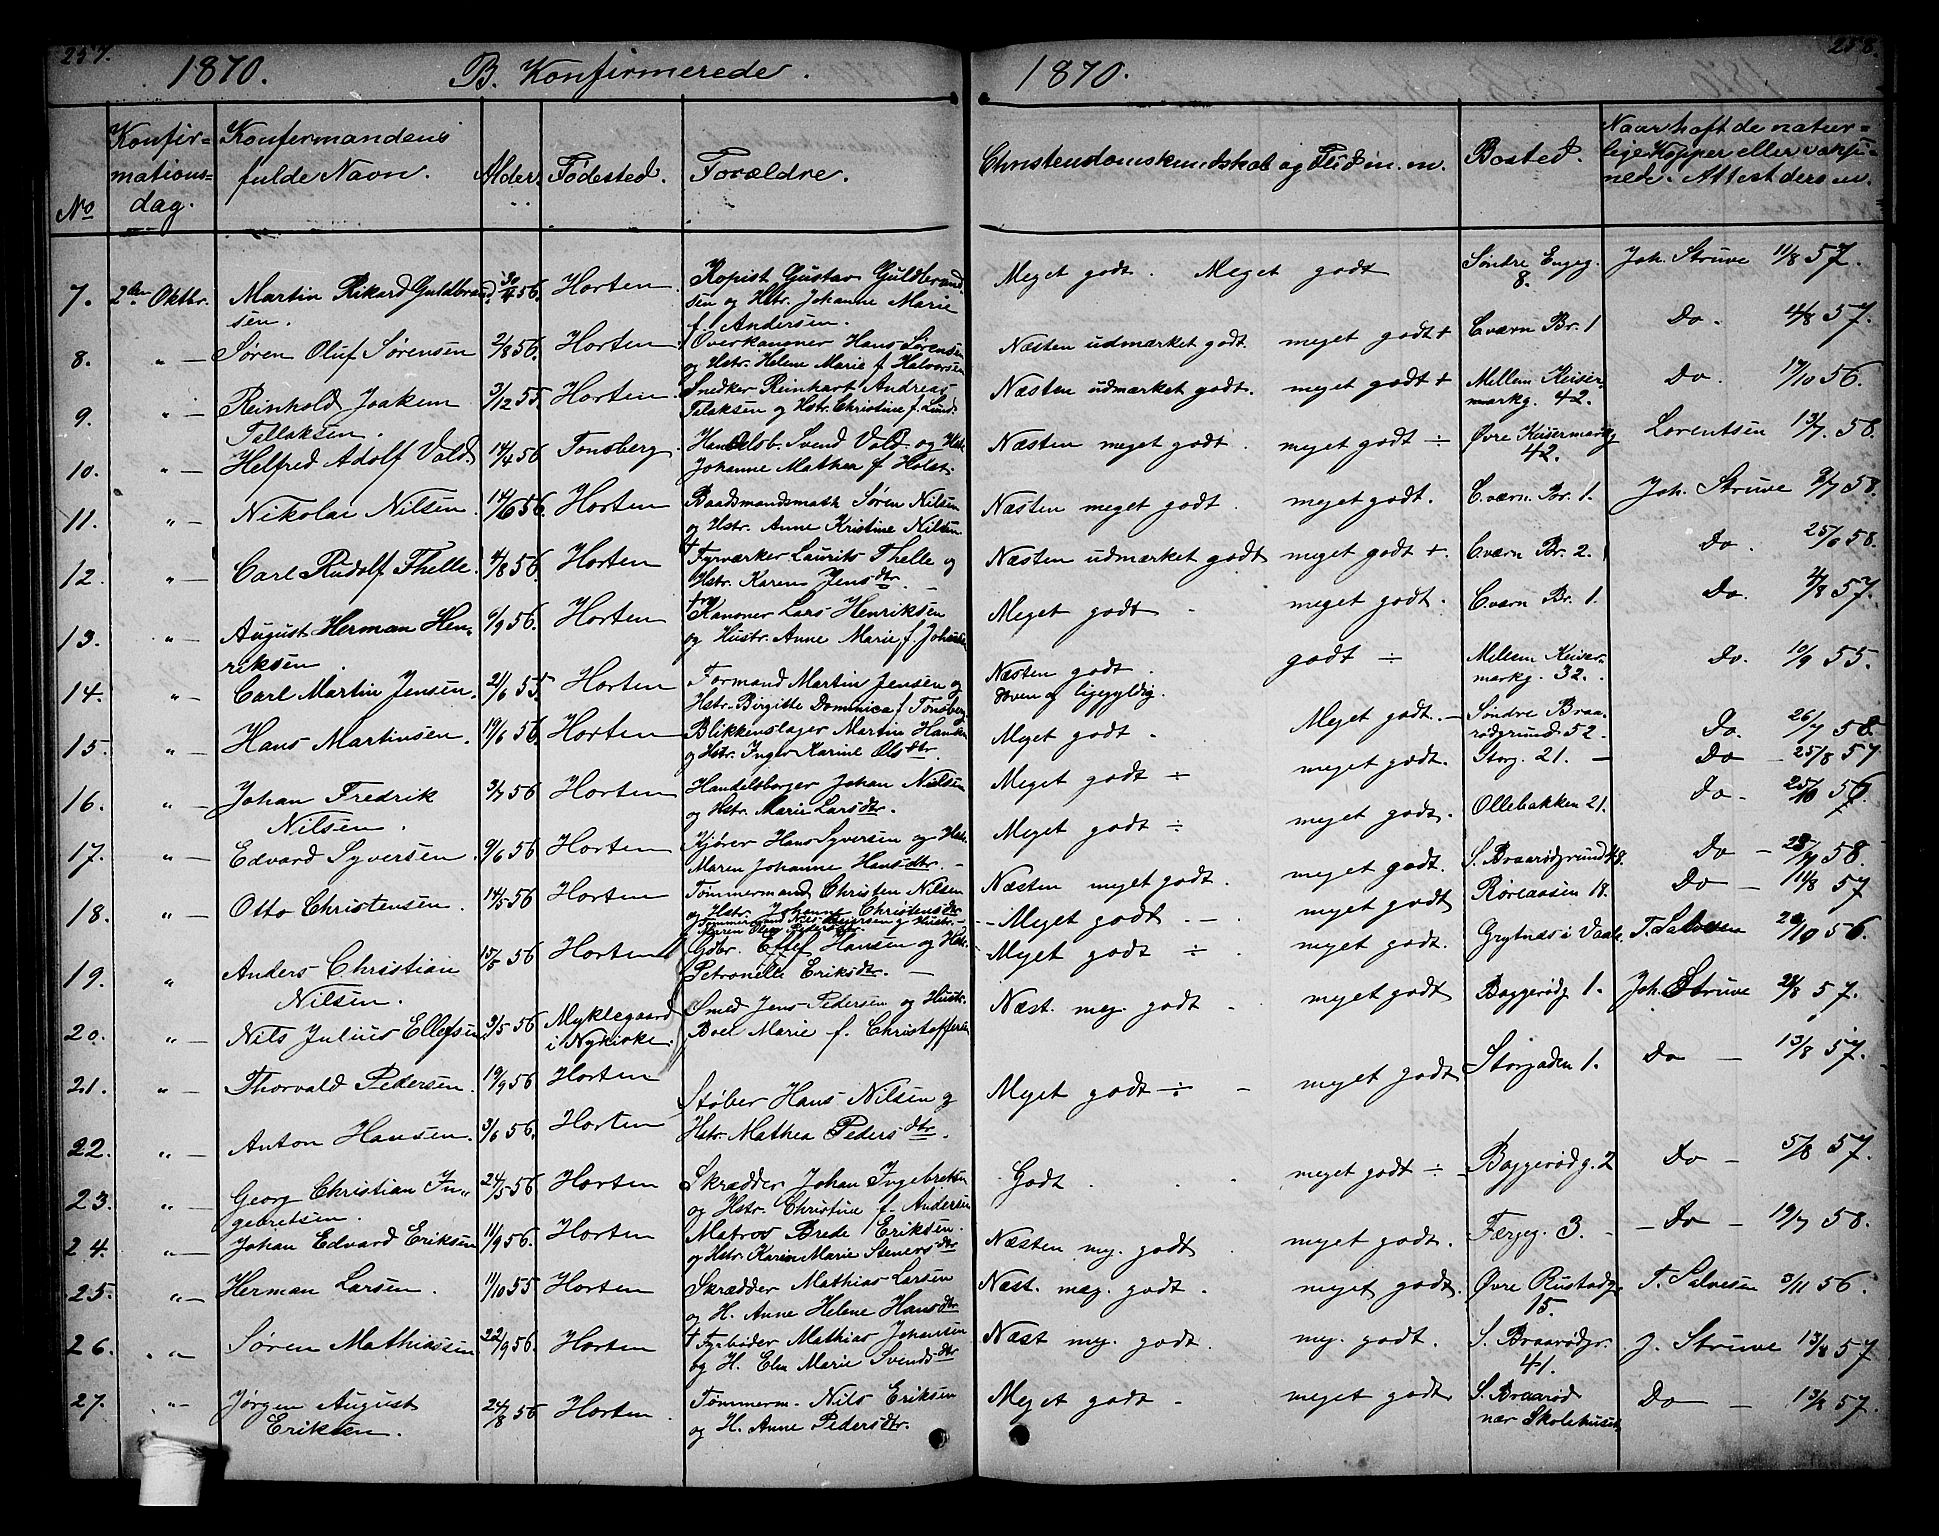 257.
1870. B. Konfirmerede.
No
Konfir-
mations-
dag.
Konfermandens
fulde Navn.
Alder.
Fødested.
Forældre.
7. 2den Oktbr. Martin Rikard Guldbrand- 30/4 56. Horten. Kopist Gustav Guldbrand-
sen. sen og Hstr. Johanne Marie
f. Andersen.
8. " — Søren Oluf Sørensen 2/8 56. Horten Overkanoner Hans Sørensen
og Hstr. Helene Marie f. Halvorsen
9. " — Reinhold Joakim 3/12 55. Horten Snedker Reinhart Andreas
Tellaksen. Tellaksen og Hstr. Christine f. Lund.
10. " — Helfred Adolf Vold 14/4 56 Tønsberg. Handelsb. Svend Vold og Hstr.
Johanne Mathea f. Holst.
11. " — Nikolai Nilsen. 14/6 56. Horten Baadsmandsmath Søren Nilsen
og Hstr. Anne Kristine Nilsen.
12. " — Carl Rudolf Thelle. 4/8 56. Horten † Fyrværker Laurits Thelle og
Hstr. Karen Jensdtr.
13. " August Herman Hen- 6/9 56. Horten Kanoner Lars Henriksen
riksen. og Hustr. Anne Marie f. Johnsen
14. " — Carl Martin Jensen. 21/6 55. Horten Formand Martin Jensen og
Hstr. Birgitte Dominica f. Tønsberg.
15. " — Hans Martinsen. 19/6 56. Horten Blikkenslager Martin Hansen
og Hstr. Inger Karine Olsdtr.
16. " — Johan Fredrik 3/7 56 Horten Handelsborger Johan Nielsen
Nilsen. og Hstr. Marie Larsdtr.
17. " — Edvard Syversen 9/6 56 Horten Kjører Hans Syversen og Hstr.
Maren Johanne Hansdtr. —
18. " — Otto Christensen. 14/5 56 Horten Tømmermand Christen Nilsen
og Hstr. Johanne Christensdtr
19. " Anders Christian 15/5 56 Horten Gdbr. Ellef Hansen og Hstr.
Nilsen. Petronelle Eriksdtr. —
20. " — Nils Julius Ellefsen 3/5 56 Myklegaard Smed Jens Pedersen og Hustr.
i Nykirke. Boel Marie f. Christoffersen
21. " — Thorvald Pedersen. 19/9 56 Horten
Støber Hans Nilsen og
22. " — Anton Hansen. 3/6 56. Horten Hstr. Mathea Pedersdtr.
23. " — Georg Christian In- 24/5 56 Horten Skrædder Johan Ingebretsen
gebretsen. og Hstr. Christine f. Andersen
24. " — Johan Edvard Eriksen 11/9 56. Horten Matros Brede Eriksen.
og Hstr. Karen Marie Stenersdtr
25. " — Herman Larsen. 11/10 55 Horten Skrædder Mathias Larsen
og H. Anne Helene Hansdtr
26. " Søren Mathiassen 22/9 56. Horten † Fyrbøder Mathias Johansen
og H. Elen Marie Svendsdtr
27. " Jørgen August 24/8 56 Horten. Tømmerm. Nils Eriksen
Eriksen. og H. Anne Pedersdtr.
258.
1870.
Christendomskundskab og Flid m. m.
Bosted.
Naar haft de natur-
lige Kopper eller vacsi-
nede. Attest dersom.
Meget godt. Meget godt Søndre Engeg. Joh. Struve 11/8 57.
8.
Næsten udmærket godt. meget godt + C. værn Br. 1 Do. 4/8 57.
Næsten udmærket godt. meget godt + Mellem Keiser- Do. 17/10 56.
markg. 42.
Næsten meget godt. meget godt ÷ Øvre Keisermarkg Lorentsen 13/7 58.
42.
Næsten meget godt. meget godt. C. værn Br. 1. Joh. Struve 2/7 58.
Næsten udmærket godt meget godt +. C. værn Br. 2. Do. 25/6 58.
Meget godt meget godt. C. værn Br. 1. Do. 4/8 57.
Næsten godt. godt ÷ Mellem Keiser- Do. 10/9 55.
Doven og ligegyldig. markg. 32.
Meget godt. Meget godt. — Søndre Braa- Do. 26/7 58.
rødgrund 52.
Meget godt ÷ meget godt. Storg. 21. — Do — 25/8 57
Meget godt ÷ meget godt. Ollebakken 21. Do — 25/10 56
Næsten meget godt. meget godt. S. Braarødgrund 48. Do — 28/7 58.
- Meget godt. — meget godt Røreaasen 18. Do — 11/8 57
- Meget godt ÷ meget godt. Grytnes i Vaale. T. Salvesen 29/10 56.
Næst. meg. godt meget godt Baggerødg 1. Joh. Struve 28/8 57.
Meget godt ÷ - meget godt Storgaden 1. Do — 13/8 57.
Godt meget godt ÷ Baggerødg. 2 Do — 5/8 57.
Næsten meg. godt. meget godt. Færgeg. 3. - — Do — 19/7 58.
Næst. meg. godt. meget godt. Øvre Rustadg. T. Salvesen 3/11 56.
15.
Næst meg. godt meg. godt. S. Braarødgr. J. Struve 13/8 57
41.
Meget godt. meget godt S. Braarød Do — 13/8 57.
nær Skolehuset.